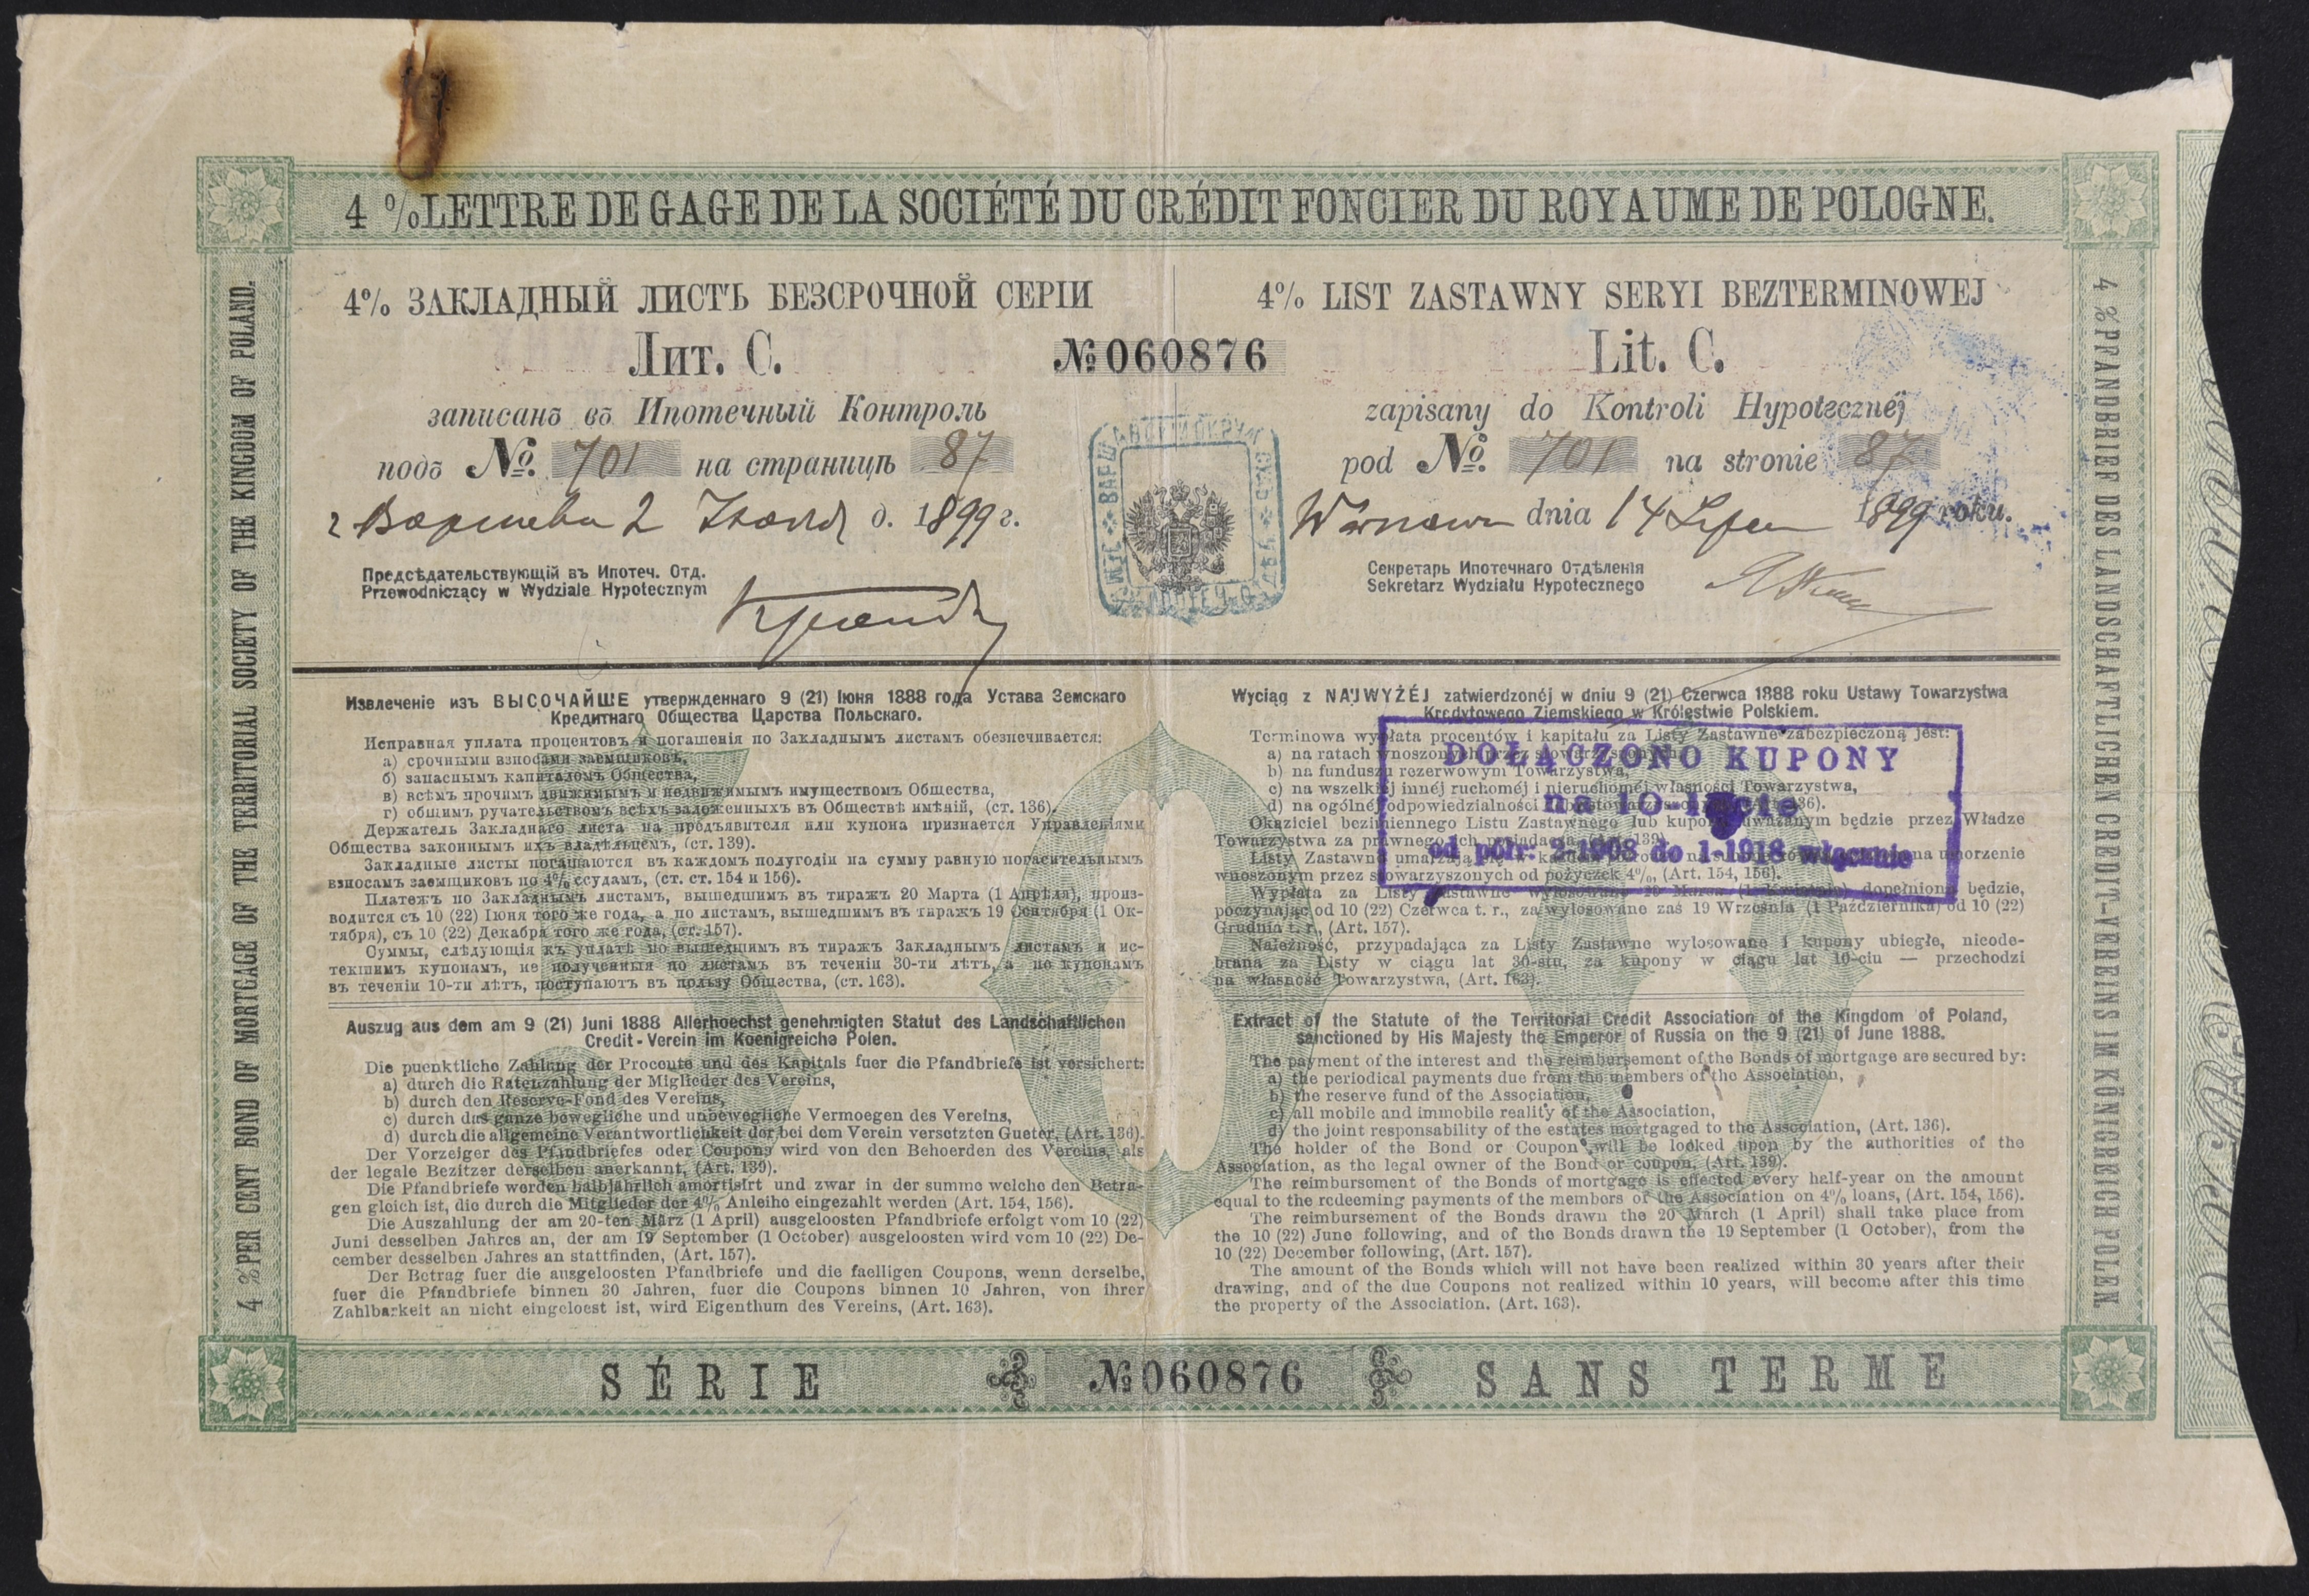 4 % LETTRE DE GAGE DE LA SOCIÉTÉ DU CRÉDIT FONCIER DU ROYAUME DE POLOGNE.
4 % PER CENT BOND OF MORTGAGE OF THE TERRITORIAL SOCIETY OF THE KINGDOM OF POLAND.
4% ЗАКЛАДНЫЙ ЛИСТЪ БЕЗСРОЧНОЙ СЕРІИ
Лит. С.
№ 060876
записанъ въ Ипотечный Контроль
подъ №. 701 на страницѣ 87
г Варшава 2 Іюля д. 1899 г.
Предсѣдательствующій въ Ипотеч. Отд.
Przewodniczący w Wydziale Hypotecznym
4% LIST ZASTAWNY SERYI BEZTERMINOWEJ
Lit. C.
zapisany do Kontroli Hypotecznéj
pod №. 701 na stronie 87
Warszawa dnia 14 Lipca 1899 roku.
Секретарь Ипотечнаго Отдѣленія
Sekretarz Wydziału Hypotecznego
Извлеченіе изъ ВЫСОЧАЙШЕ утвержденнаго 9 (21) Іюня 1888 года Устава Земскаго
Кредитнаго Общества Царства Польскаго.
Исправная уплата процентовъ и погашенія по Закладнымъ листамъ обезпечивается:
а) срочными взносами заемщиковъ,
б) запаснымъ капиталомъ Общества,
в) всѣмъ прочимъ движимымъ и недвижимымъ имуществомъ Общества,
г) общимъ ручательствомъ всѣхъ заложенныхъ въ Обществѣ имѣній, (ст. 136).
Держатель Закладнаго листа на предъявителя или купона признается Управленіями
Общества законнымъ ихъ владѣльцемъ, (ст. 139).
Закладные листы погашаются въ каждомъ полугодіи на сумму равную погасительнымъ
взносамъ заемщиковъ по 4% ссудамъ, (ст. ст. 154 и 156).
Платежъ по Закладнымъ листамъ, вышедшимъ въ тиражъ 20 Марта (1 Апрѣля), произ-
водится съ 10 (22) Іюня того же года, а по листамъ, вышедшимъ въ тиражъ 19 Сентября (1 Ок-
тября), съ 10 (22) Декабря того же года, (ст. 157).
Суммы, слѣдующія къ уплатѣ по вышедшимъ въ тиражъ Закладнымъ листамъ и ис-
текшимъ купонамъ, не полученныя по листамъ въ теченіи 30-ти лѣтъ, а по купонамъ
въ теченіи 10-ти лѣтъ, поступаютъ въ пользу Общества, (ст. 163).
Wyciąg z NAJWYŻÉJ zatwierdzonéj w dniu 9 (21) Czerwca 1888 roku Ustawy Towarzystwa
Kredytowego Ziemskiego w Królestwie Polskiem.
Terminowa wypłata procentów i kapitału za Listy Zastawne zabezpieczoną jest:
a) na ratach wnoszonych przez
b) na funduszu rezerwowym Towarzystwa,
c) na wszelkiéj innéj ruchoméj i nieruchoméj własności Towarzystwa,
d) na ogólnéj odpowiedzialności 136).
Okaziciel bezimiennego Listu Zastawnego lub kuponu uważanym będzie przez Władze
Towarzystwa za prawnego ich posiadacza, (Art. 139).
Listy Zastawne umarzają na umorzenie
wnoszonym przez stowarzyszonych od pożyczek 4%, (Art. 154, 156).
Wypłata za Listy Zastawne wylosowane 20 Marca (1 Kwietnia) dopełnioną będzie,
poczynając od 10 (22) Czerwca t. r., za wylosowane zaś 19 Września (1 Października) od 10 (22)
Grudnia t. r., (Art. 157).
Należność, przypadająca za Listy Zastawne wylosowane i kupony ubiegłe, nieode-
brana za Listy w ciągu lat 30-stu, za kupony w ciągu lat 10-ciu — przechodzi
na własność Towarzystwa, (Art. 163).
DOŁĄCZONO KUPONY
na 10-lecie
od półr: 2-1908 do 1-1918 włącznie
Auszug aus dem am 9 (21) Juni 1888 Allerhoechst genehmigten Statut des Landschaftlichen
Credit-Verein im Koenigreiche Polen.
Die puenktliche Zahlung der Procente und des Kapitals fuer die Pfandbriefe ist versichert:
a) durch die Ratenzahlung der Miglieder des Vereins,
b) durch den Reserve-Fond des Vereins,
c) durch das ganze bewegliche und unbewegliche Vermoegen des Vereins,
d) durch die allgemeine Verantwortlichkeit der bei dem Verein versetzten Gueter, (Art. 136).
Der Vorzeiger des Pfandbriefes oder Coupons wird von den Behoerden des Vereins, als
der legale Bezitzer derselben anerkannt, (Art. 139).
Die Pfandbriefe werden halbjährlich amortisirt und zwar in der summe welche den Betra-
gen gleich ist, die durch die Mitglieder der 4% Anleihe eingezahlt werden (Art. 154, 156).
Die Auszahlung der am 20-ten März (1 April) ausgeloosten Pfandbriefe erfolgt vom 10 (22)
Juni desselben Jahres an, der am 19 September (1 October) ausgeloosten wird vom 10 (22) De-
cember desselben Jahres an stattfinden, (Art. 157).
Der Betrag fuer die ausgeloosten Pfandbriefe und die faelligen Coupons, wenn derselbe,
fuer die Pfandbriefe binnen 30 Jahren, fuer die Coupons binnen 10 Jahren, von ihrer
Zahlbarkeit an nicht eingeloest ist, wird Eigenthum des Vereins, (Art. 163).
Extract of the Statute of the Territorial Credit Association of the Kingdom of Poland,
sanctioned by His Majesty the Emperor of Russia on the 9 (21) of June 1888.
The payment of the interest and the reimbursement of the Bonds of mortgage are secured by:
a) the periodical payments due from the members of the Association,
b) the reserve fund of the Association,
c) all mobile and immobile reality of the Association,
d) the joint responsability of the estates mortgaged to the Association, (Art. 136).
The holder of the Bond or Coupon will be looked upon by the authorities of the
Association, as the legal owner of the Bond or coupon, (Art. 139).
The reimbursement of the Bonds of mortgage is effected every half-year on the amount
equal to the redeeming payments of the members of the Association on 4% loans, (Art. 154, 156).
The reimbursement of the Bonds drawn the 20 March (1 April) shall take place from
the 10 (22) June following, and of the Bonds drawn the 19 September (1 October), from the
10 (22) December following, (Art. 157).
The amount of the Bonds which will not have been realized within 30 years after their
drawing, and of the due Coupons not realized within 10 years, will become after this time
the property of the Association. (Art. 163).
4 % PFANDBRIEF DES LANDSCHAFTLICHEN CREDIT-VEREINS IM KÖNIGREICH POLEN
SÉRIE № 060876 SANS TERME